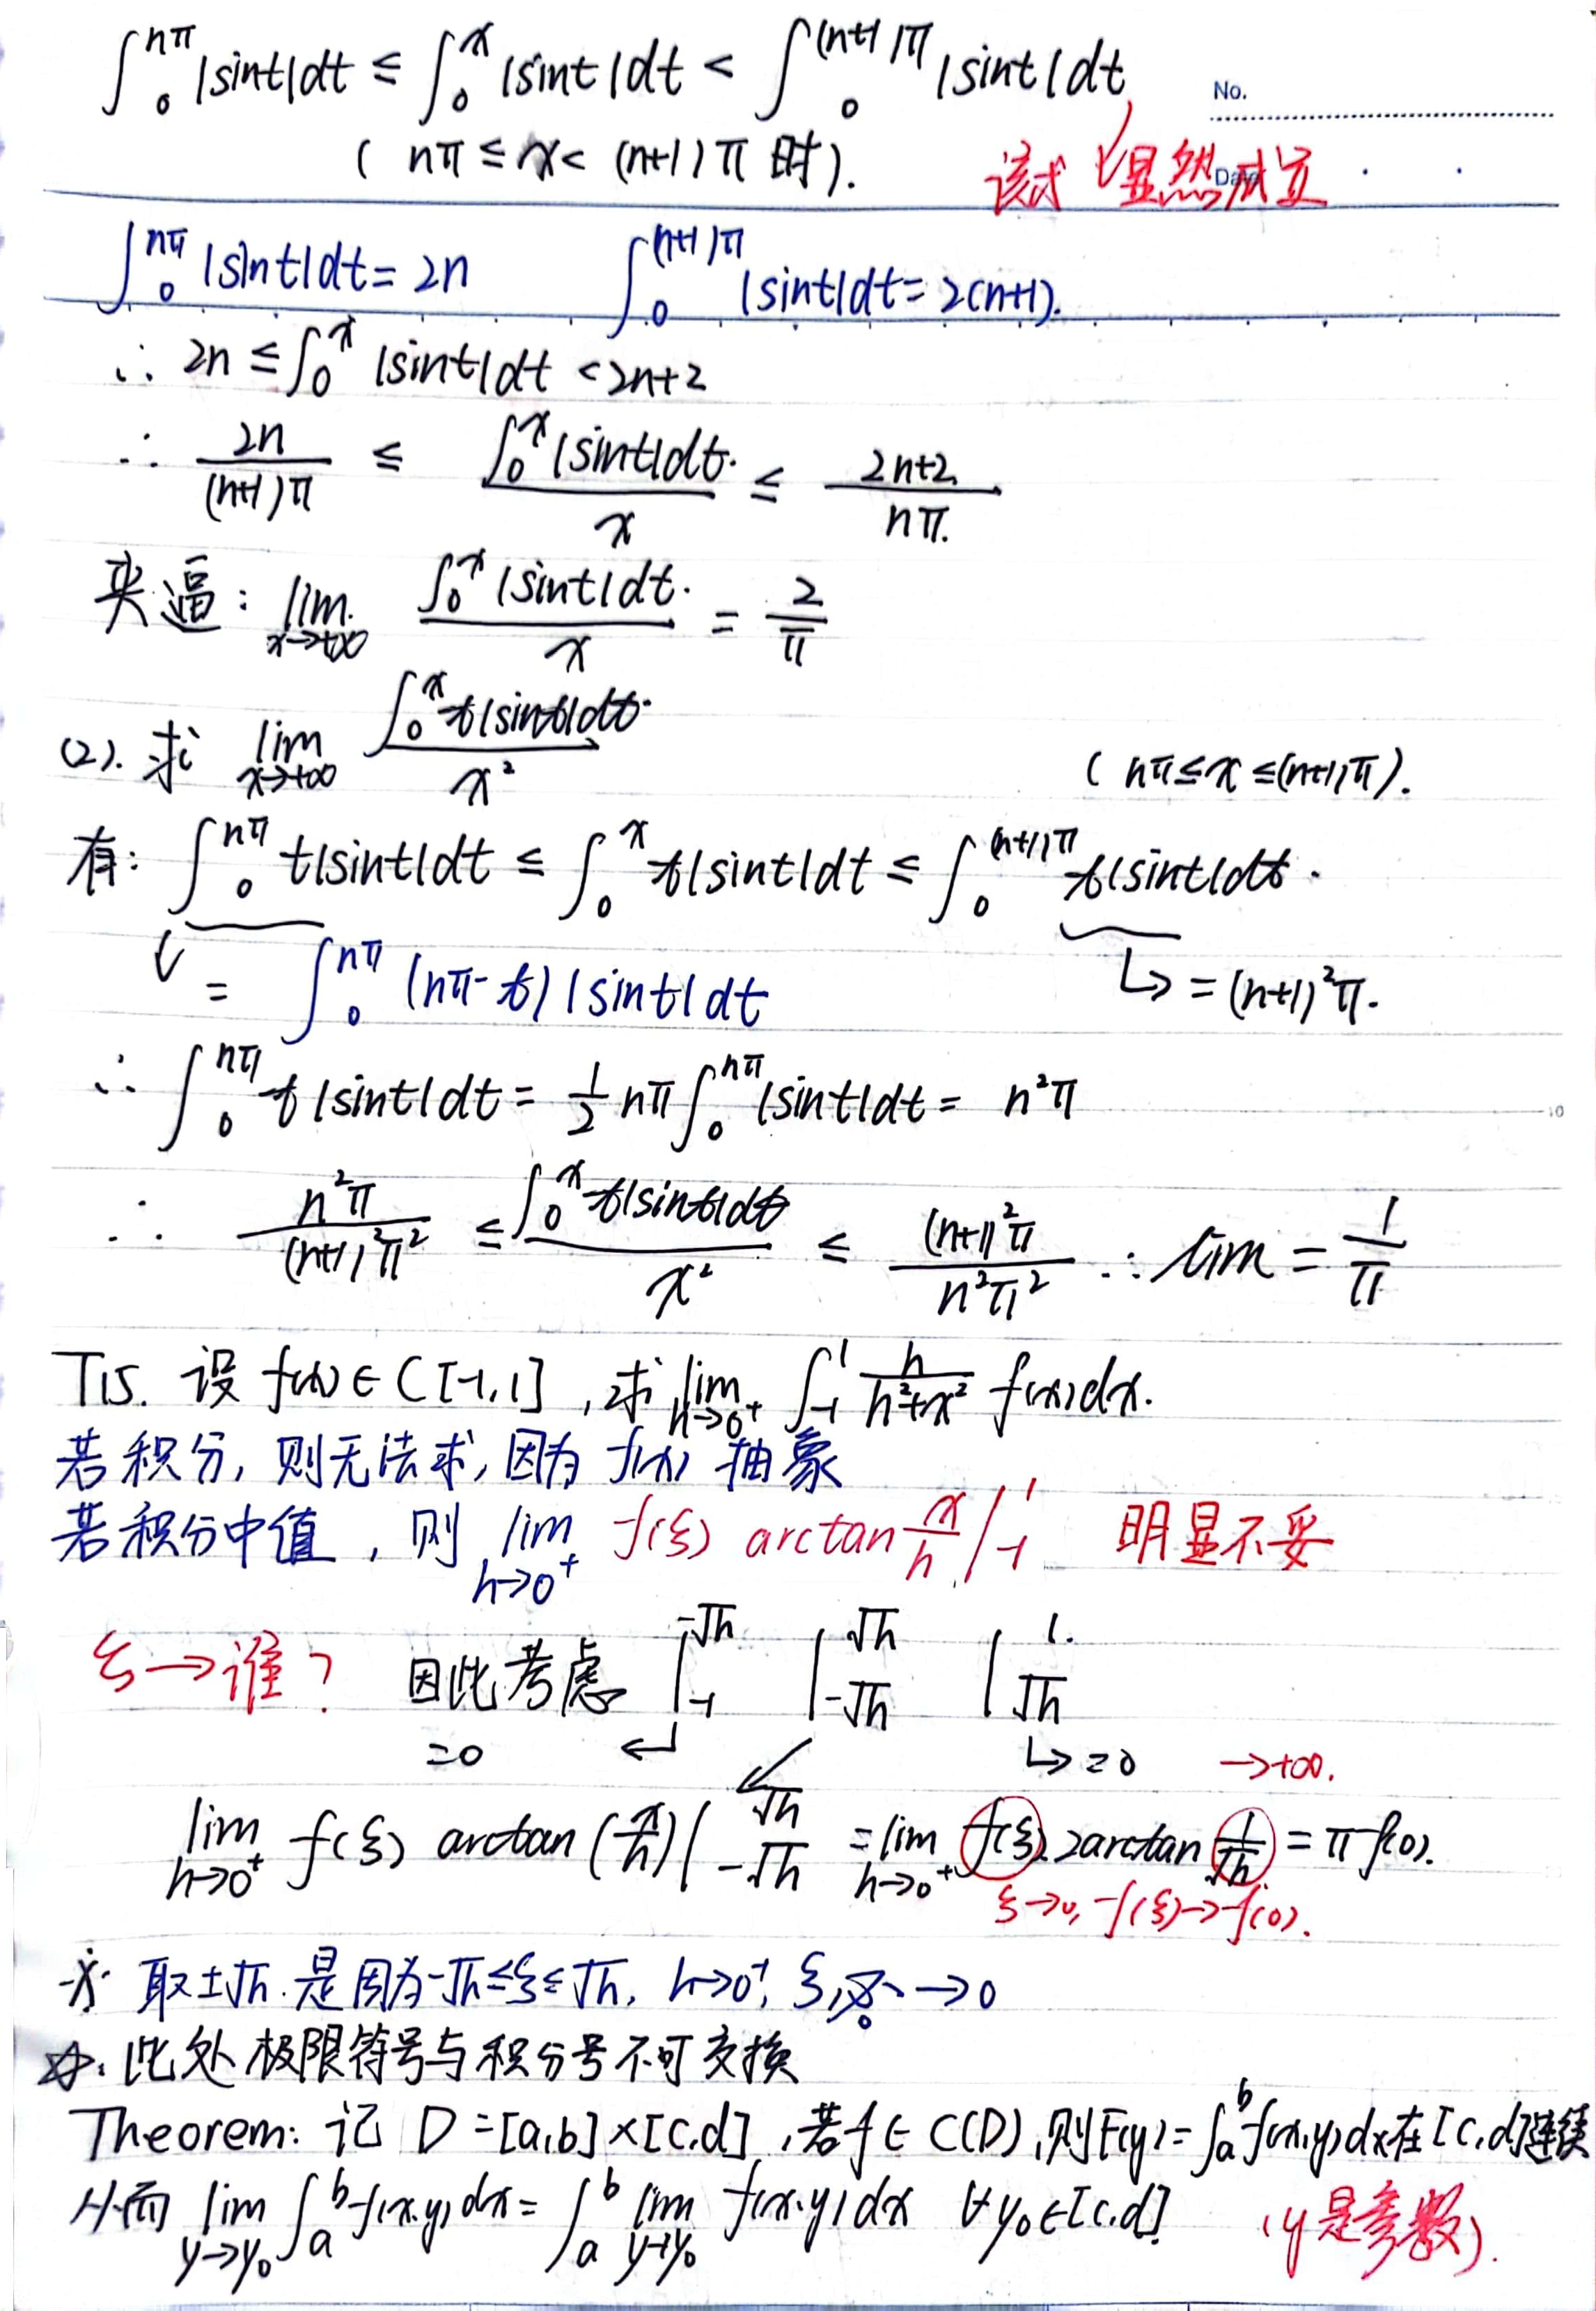 ∫₀^{nπ} |sint|dt ≤ ∫₀^x |sint|dt < ∫₀^{(n+1)π} |sint|dt
No.
( nπ ≤ x < (n+1)π 时).
该式显然成立
Date
∫₀^{nπ} |sint|dt = 2n ∫₀^{(n+1)π} |sint|dt = 2(n+1).
∴ 2n ≤ ∫₀^x |sint|dt < 2n+2
∴ 2n/((n+1)π) ≤ ∫₀^x |sint|dt / x ≤ (2n+2)/(nπ).
夹逼: lim_{x→+∞} ∫₀^x |sint|dt / x = 2/π
(2). 求 lim_{x→+∞} ∫₀^x t|sint|dt / x²
( nπ ≤ x ≤ (n+1)π ).
有: ∫₀^{nπ} t|sint|dt ≤ ∫₀^x t|sint|dt ≤ ∫₀^{(n+1)π} t|sint|dt.
= ∫₀^{nπ} (nπ-t)|sint|dt ↳ = (n+1)²π.
∴ ∫₀^{nπ} t|sint|dt = 1/2 nπ ∫₀^{nπ} |sint|dt = n²π
10
∴ n²π/((n+1)²π²) ≤ ∫₀^x t|sint|dt / x² ≤ (n+1)²π/(n²π²) ∴ lim = 1/π
T15. 设 f(x) ∈ C[-1,1], 求 lim_{h→0⁺} ∫_{-1}^1 h/(h²+x²) f(x)dx.
若积分, 则无法求, 因为 f(x) 抽象
若积分中值, 则 lim_{h→0⁺} f(ξ) arctan x/h |_{-1}^1 明显不妥
ξ→谁? 因此考虑 ∫_{-1}^{-√h} ∫_{-√h}^{√h} ∫_{√h}^1.
=0 ← ↙ ↳ =0 →+∞.
lim_{h→0⁺} f(ξ) arctan(x/h)|_{-√h}^{√h} = lim_{h→0⁺} f(ξ) 2arctan 1/√h = πf(0).
ξ→0, f(ξ)→f(0).
※ 取±√h 是因为 -√h ≤ ξ ≤ √h, h→0⁺, ξ必→0
☆: 此处极限符号与积分号不可交换
Theorem: 记 D = [a,b]×[c,d], 若 f ∈ C(D), 则 F(y) = ∫_a^b f(x,y)dx 在 [c,d] 连续
从而 lim_{y→y₀} ∫_a^b f(x,y)dx = ∫_a^b lim_{y→y₀} f(x,y)dx ∀y₀∈[c,d] (y是参数).